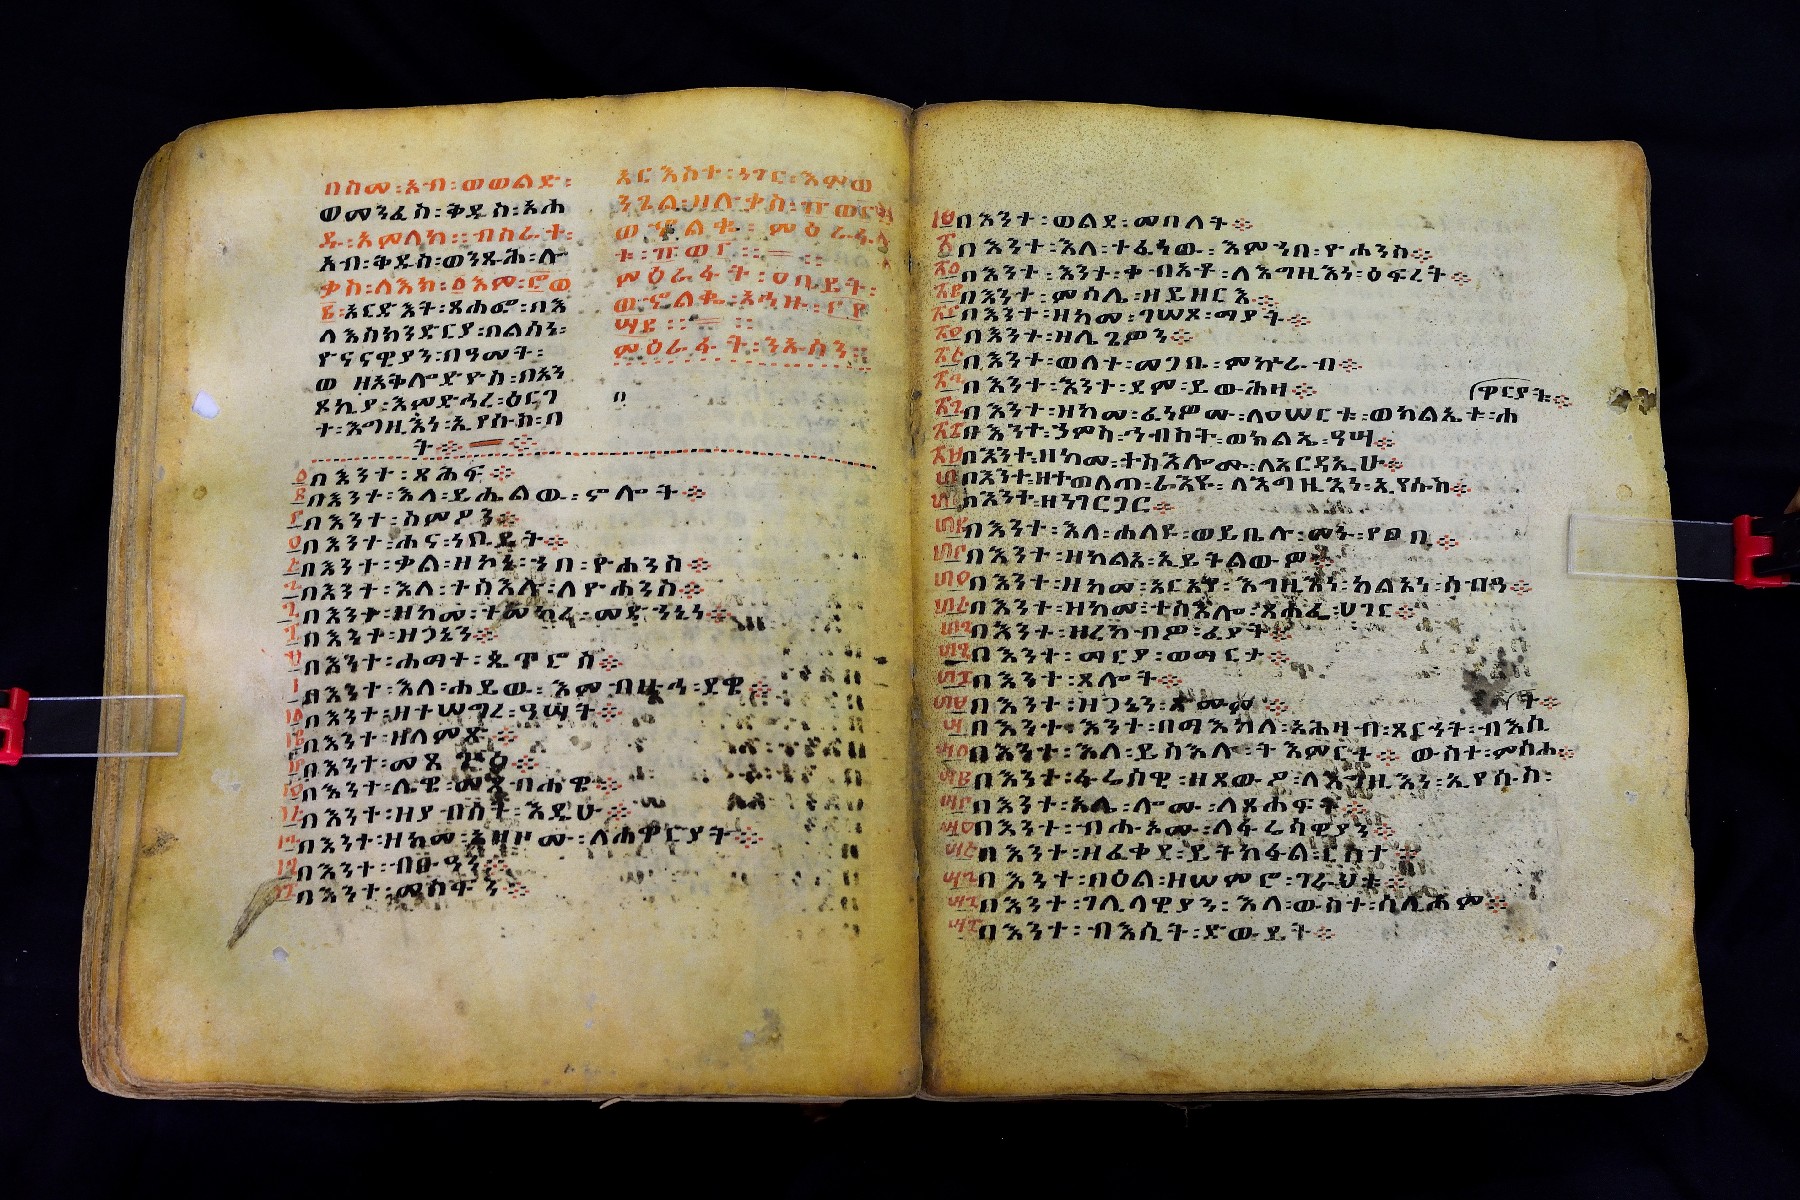 በስመ፡አብ፡ወወልድ፡
ወመንፈስ፡ቅዱስ፡አሐ
ዱ፡አምላክ፡፡ብስራተ፡
አብ፡ቅዱስ፡ወንጹሕ፡ሉ
ቃስ፡ለአክ፡፩እም፡፸ወ
፪፡አርድእት፡ጸሐፎ፡በእ
ለእስክንድርያ፡በልሳን፡
ዮናናዊያን፡በዓመት፡
ወ ዘአቅሎድዮስ፡በአን
ጾኪያ፡እምድኅረ፡ዕርገ
ተ፡እግዚእነ፡ኢየሱስ፡በ
ት፨
አርእስተ፡ነገር፡እምወ
ንጌል፡ዘሉቃስ፡
ምዕራፋት፡ዐቢይት፡
ወኍልቈ፡
ምዕራፋት፡ንኡስን፡፡
በ
፩በእንተ፡ጸሕፍ፨
፪በእንተ፡እለ፡ይሔልው፡ኖሎት፨
፫በእንተ፡ስምዖን፨
፬በእንተ፡ሐና፡ነቢይት፨
፭በእንተ፡ቃል፡ዘኮነ፡ኀበ፡ዮሐንስ፨
፮በእንተ፡እለ፡ተስእሉ፡ለዮሐንስ፨
፯በእንተ፡ዘከመ፡ተመከረ፡መድኃኒነ፨
፰በእንተ፡ዘጋኔን፨
፱በእንተ፡ሐማተ፡ጴጥሮስ፨
፲በእንተ፡እለ፡ሐይው፡እምብዙኅ፡ደዌ፨
፲፩በእንተ፡ዘተሠግረ፡ዓሣት፨
፲፪በእንተ፡ዘለምጽ፨
፲፫በእንተ፡መፃጕዕ፨
፲፬በእንተ፡ሌዊ፡መጸብሐዊ፨
፲፭በእንተ፡ዘያብሰት፡እዴሁ፨
፲፮በእንተ፡ዘከመ፡አዘዞሙ፡ለሐዋርያት፨
፲፯በእንተ፡ብፁዓን፨
፲፰በእንተ፡መስፍን፨
፲፱በእንተ፡ወልደ፡መበለት፨
፳በእንተ፡እለ፡ተፈነው፡እምኀበ፡ዮሐንስ፨
፳፩በእንተ፡እንተ፡ቀብአቶ፡ለእግዚእነ፡ዕፍረት፨
፳፪በእንተ፡ምሳሌ፡ዘይዘርእ፨
፳፫በእንተ፡ዘከመ፡ገሠጾ፡ማያት፨
፳፬በእንተ፡ዘሌጌዎን፨
፳፭በእንተ፡ወለተ፡መጋቤ፡ምኵራብ፨
፳፮በእንተ፡እንተ፡ደም፡ይውሕዛ፨
ዋርያት፡፨
፳፯በእንተ፡ዘከመ፡ፈነዎሙ፡ለ፲ወ፪ቱ፡ሐ
፳፰በእንተ፡ኃምስ፡ኅብስት፡ወክልኤ፡ዓሣ፨
፳፱በእንተ፡ዘከመ፡ተስእሎሙ፡ለአርዳኢሁ፨
፴በእንተ፡ዘተወለጠ፡ራእዩ፡ለእግዚእነ፡ኢየሱስ፨
፴፩በእንተ፡ዘንገርጋር፨
፴፪በእንተ፡እለ፡ሐለዩ፡ወይቤሉ፡መኑ፡የዐቢ፨
፴፫በእንተ፡ዘከልአ፡ኢይትልውዎ፨
፴፬በእንተ፡ዘከመ፡አርአየ፡እግዚእነ፡ካልአነ፡ሰብዓ፨
፴፭በእንተ፡ዘከመ፡ተስእሎ፡ጸሐፌ፡ሀገር፨
፴፮በእንተ፡ዘረከብዎ፡ፈያት፨
፴፯በእንተ፡ማርያ፡ወማርታ፨
፴፰በእንተ፡ጸሎት፨
፴፱በእንተ፡ዘጋኔን፡ጽሙም፨
ት፨
፵በእንተ፡እንተ፡በማእከለ፡አሕዛብ፡ጸርኀት፡ብእሲ
፵፩በእንተ፡እለ፡ይስእሉ፡ትእምርት፨ ውስተ፡ምሳሐ፨
፵፪በእንተ፡ፋሬሳዊ፡ዘጸውዖ፡ለእግዚእነ፡ኢየሱስ፡
፵፫በእንተ፡አሌ፡ሎሙ፡ለጸሐፍት፨
፵፬በእንተ፡ብሑአሙ፡ለፋሬሳዊያን፨
፵፭በእንተ፡ዘፈቀደ፡ይትካፈል፡ርስተ፨
፵፮በእንተ፡በዕል፡ዘሠምሮ፡ገራህቱ፨
፵፯በእንተ፡ገሊላዊያን፡እለ፡ውስተ፡ሰሊሖም፨
፵፰በእንተ፡ብእሲት፡ድውይት፨